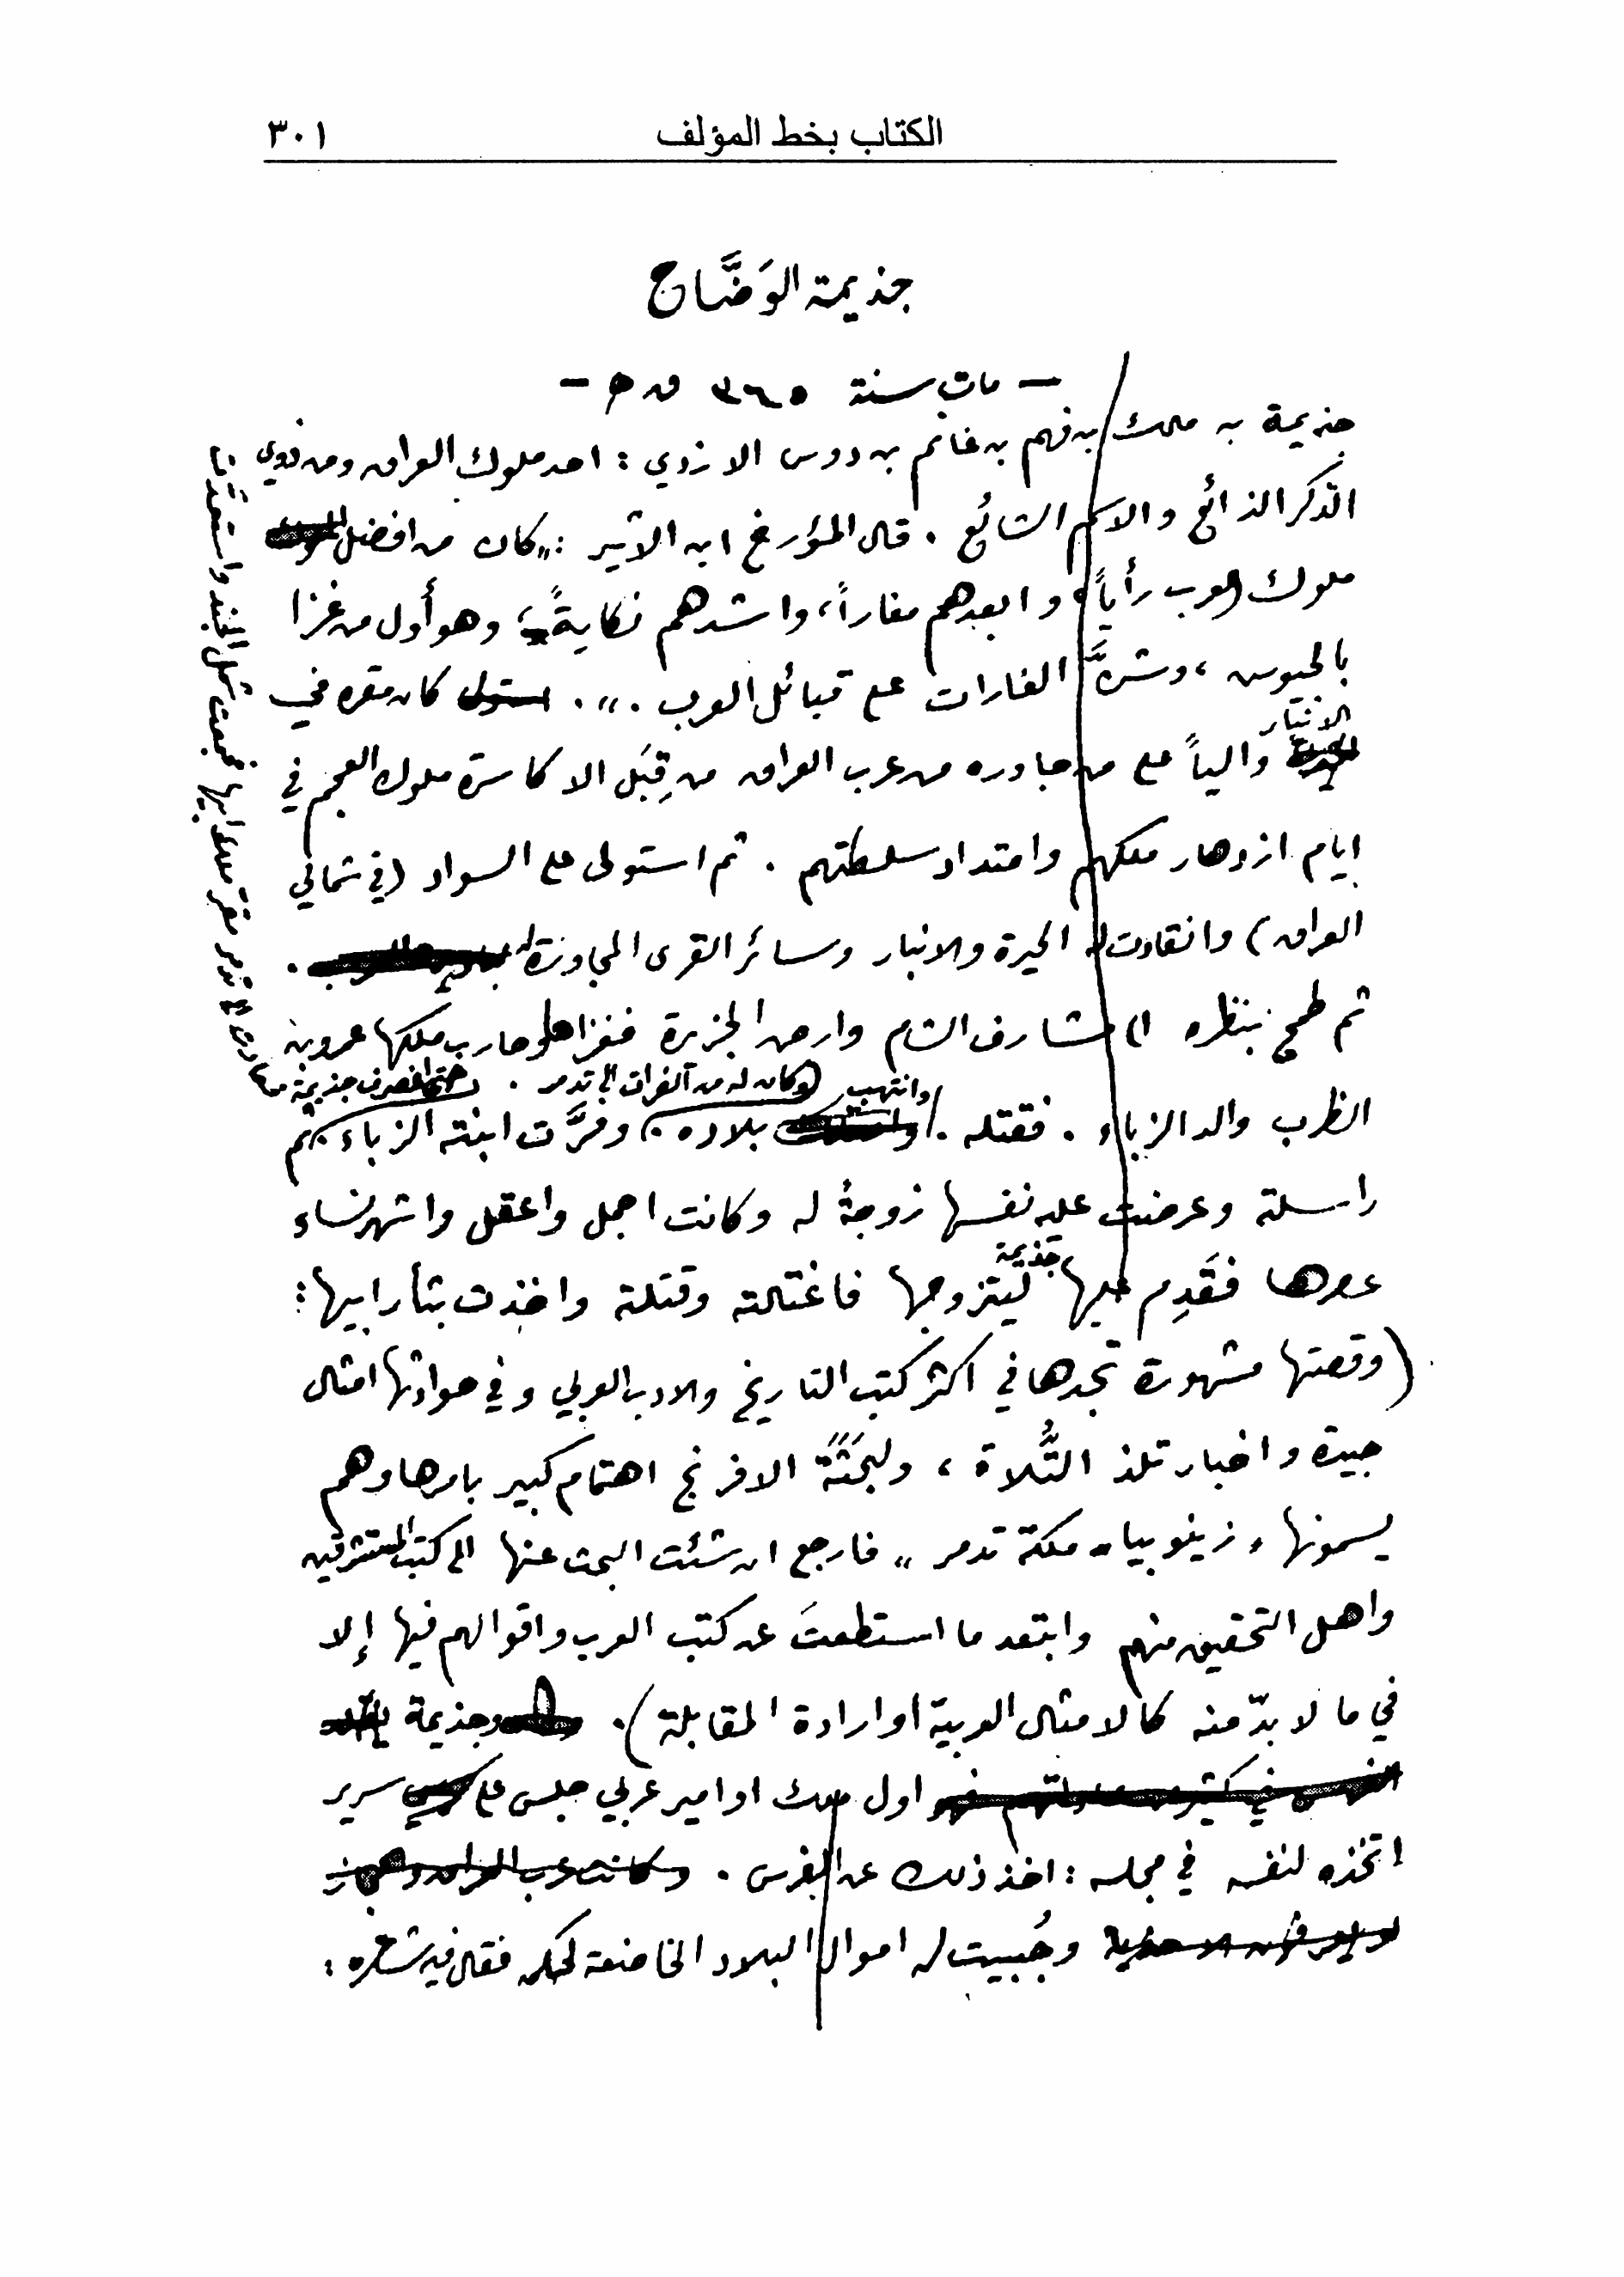 الكتاب بخط المؤلف ٣٠١
جذيمة الوَضَّاح
- مات سنة ٣٦٥ ق ه -
جذيمة بن ملك بن فهم بن غانم بن دوس الازدي : احد ملوك العراق ومن ذوي
الذكر الذائع والاسم الشائع . قال المؤرخ ابن الاثير : „ كان من افضل
ملوك العرب رأياً ، وابعدهم مغاراً ، واشدهم نكايةً ، وهو أول من غزا
بالجيوس ، وشنَّ الغارات على قبائل العرب . „ . كان مقره في
الانبار
والياً على من جاوره من عرب العراق من قِبَل الاكاسرة ملوك العجم في
ايام ازدهار ملكهم وامتداد سلطتهم . ثم استولى على السواد (في شمالي
العراق) وانقادت له الحيرة والانبار وسائر القرى المجاورة له .
ثم طمح بنظره الى مشارف الشام وارض الجزيرة فغزاها وحارب ملكها عمرو بن
وانتهب (وكان له من الفرات الى تدمر . حتى انصرف جذيمة
الظرب والد الزباء . فقتله . بلاده ، وفرَّت ابنته الزباء ، ثم
راسلته وعرضت عليه نفسها زوجةً له وكانت اجمل واعقل واشهر نساء
جذيمة
عصرها فقَدِم عليها ليتزوجها فاغتالته وقتلته واخذت بثأر ابيها :
(وقصتها مشهورة تجدها في اكثر كتب التاريخ والادب العربي وفي حوادثها امثال
جيدة واخبار تلذ التُّلاة ، ولبَحَثَة الافرنج اهتمام كبير بامرها وهم
يسمونها „ زينوبيا ـ ملكة تدمر „ فارجع ان شئت البحث عنها الى كتب المستشرقين
واهل التحقيق منهم وابتعد ما استطعتَ عن كتب العرب واقوالهم فيها إلا
في ما لا بدّ منه كالامثال العربية او ارادة المقابلة) . وجذيمة
اول ملك او امير عربي جلس على سرير
اتخذه لنفسه في مجلسه : اخذ ذلك عن الفرس .
وجُبيت له اموال البلاد الخاضعة لحكمه فقال فيه شاعره :
فجمعت شمل الجند واستعدّت